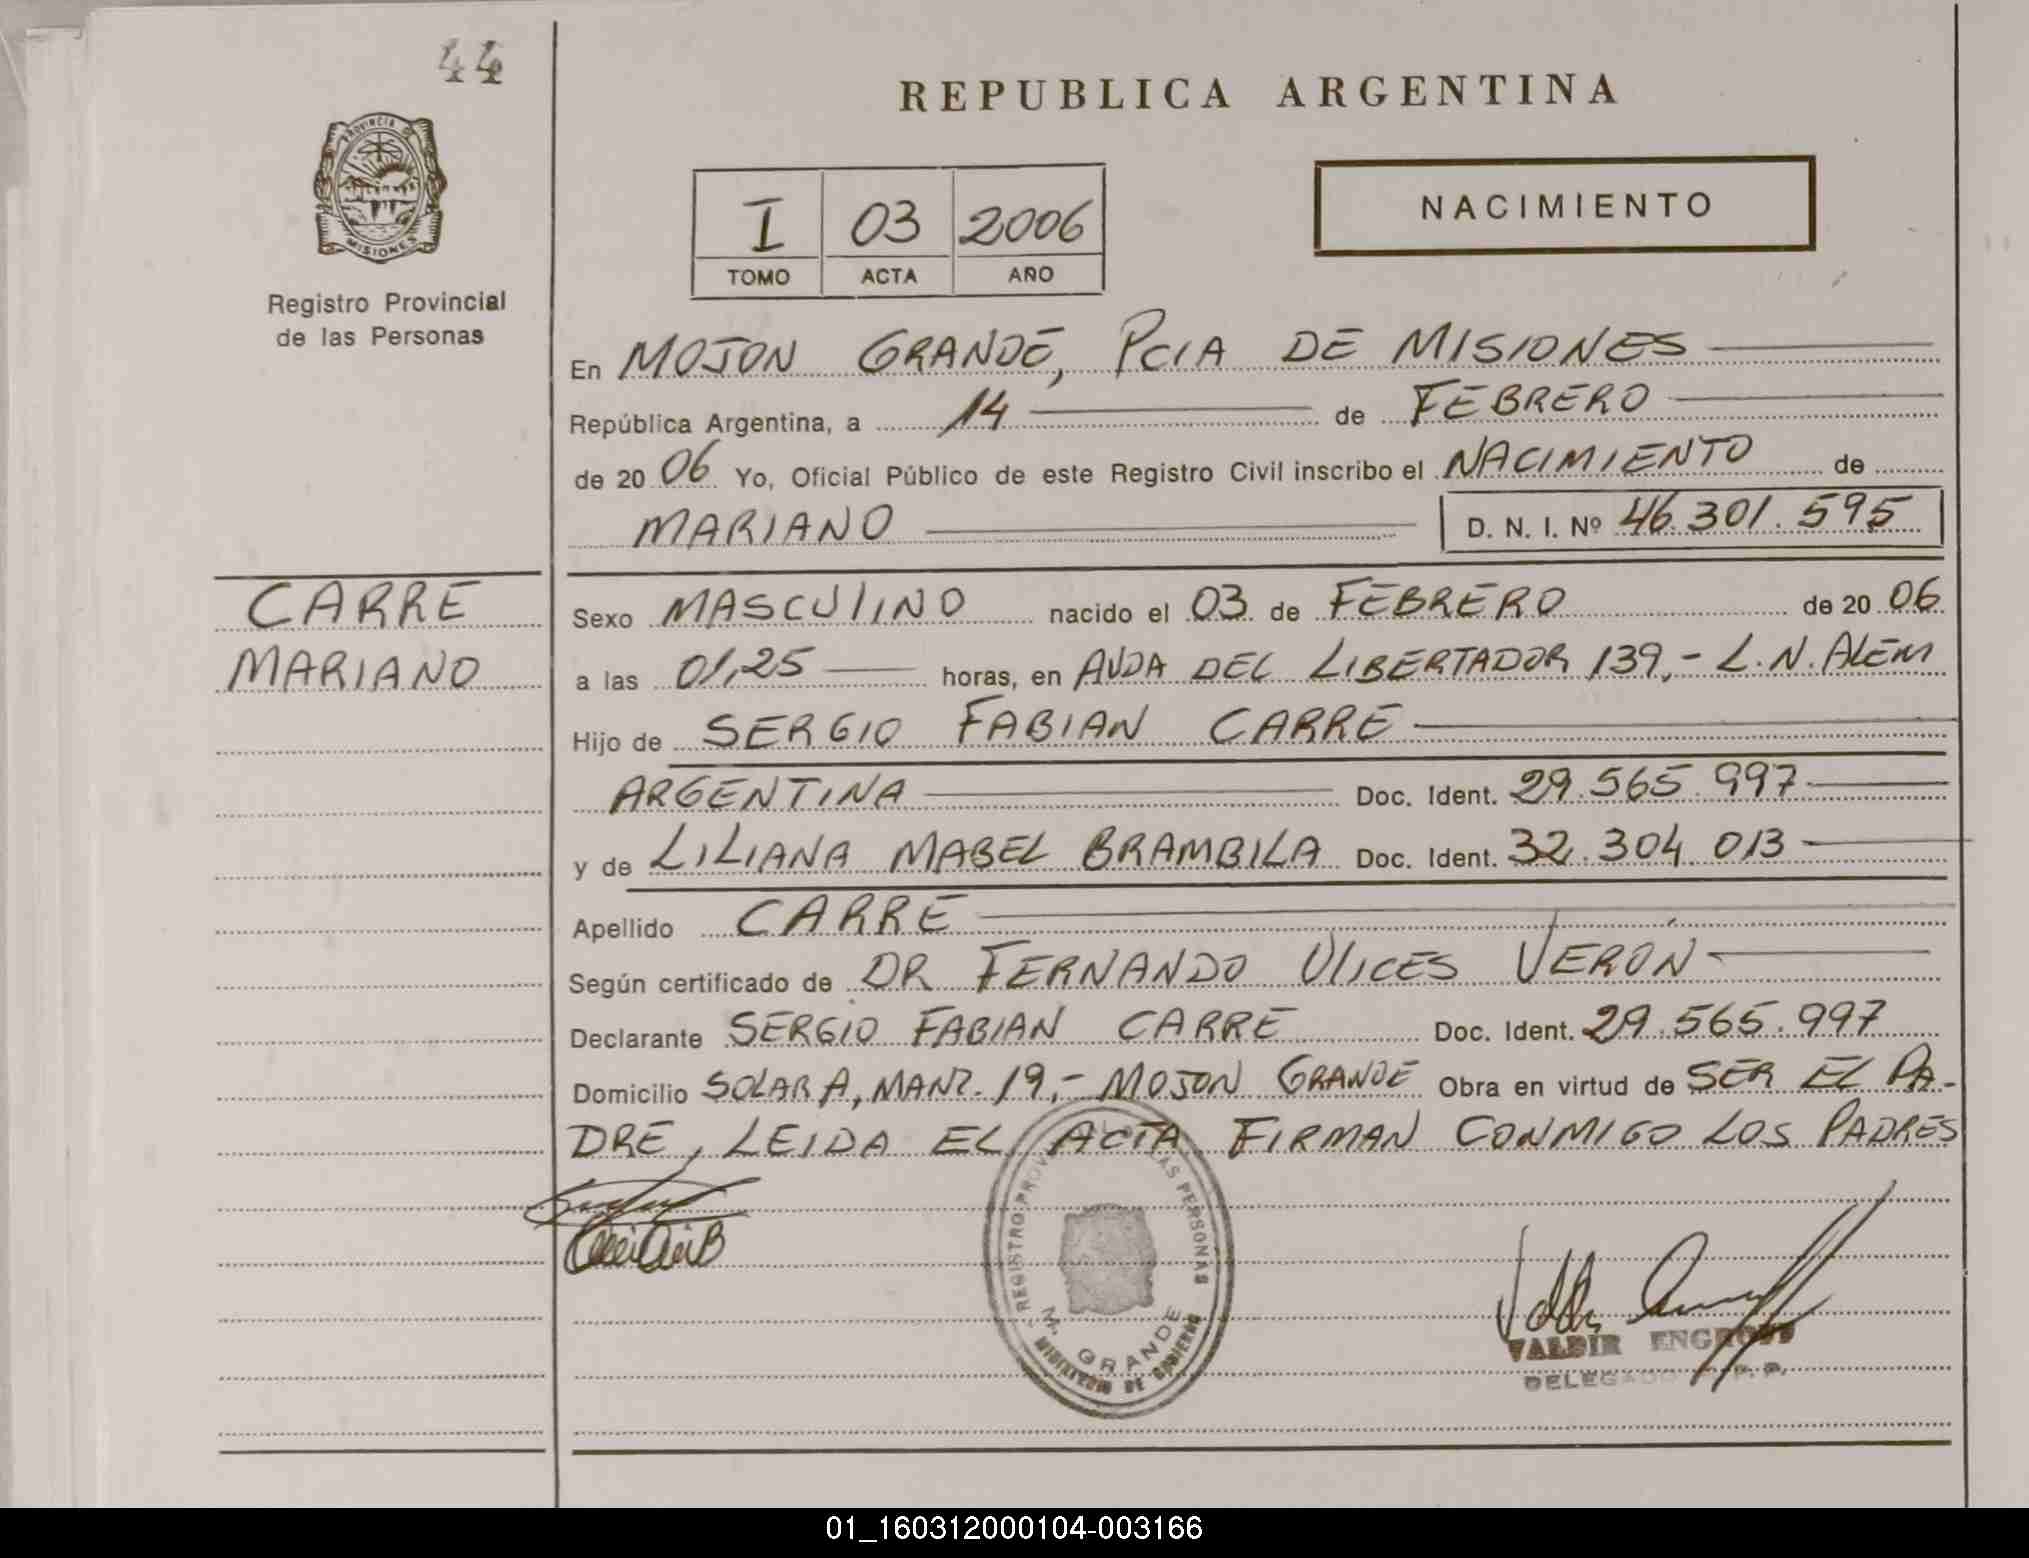 44
REPUBLICA ARGENTINA
PROVINCIA DE
MISIONES
Registro Provincial
de las Personas
I 03 2006
TOMO ACTA AÑO
NACIMIENTO
En MOJON GRANDE, PCIA DE MISIONES
República Argentina, a 14 de FEBRERO
de 20 06 Yo, Oficial Público de este Registro Civil inscribo el NACIMIENTO de
MARIANO D. N. I. Nº 46.301.595
CARRE
MARIANO
Sexo MASCULINO nacido el 03 de FEBRERO de 20 06
a las 01,25 horas, en AVDA DEL LIBERTADOR 139,- L.N. ALEM
Hijo de SERGIO FABIAN CARRE
ARGENTINA Doc. Ident. 29.565.997
y de LILIANA MABEL BRAMBILA Doc. Ident. 32.304.013
Apellido CARRE
Según certificado de DR FERNANDO ULICES VERON
Declarante SERGIO FABIAN CARRE Doc. Ident. 29.565.997
Domicilio SOLAR A, MANZ. 19,- MOJON GRANDE Obra en virtud de SER EL PA-
DRE, LEIDA EL ACTA FIRMAN CONMIGO LOS PADRES
REGISTRO PROVINCIAL DE LAS PERSONAS
M. GRANDE
MINISTERIO DE GOBIERNO
VALDIR ENGROFF
DELEGADO R.P.P.
01_160312000104-003166